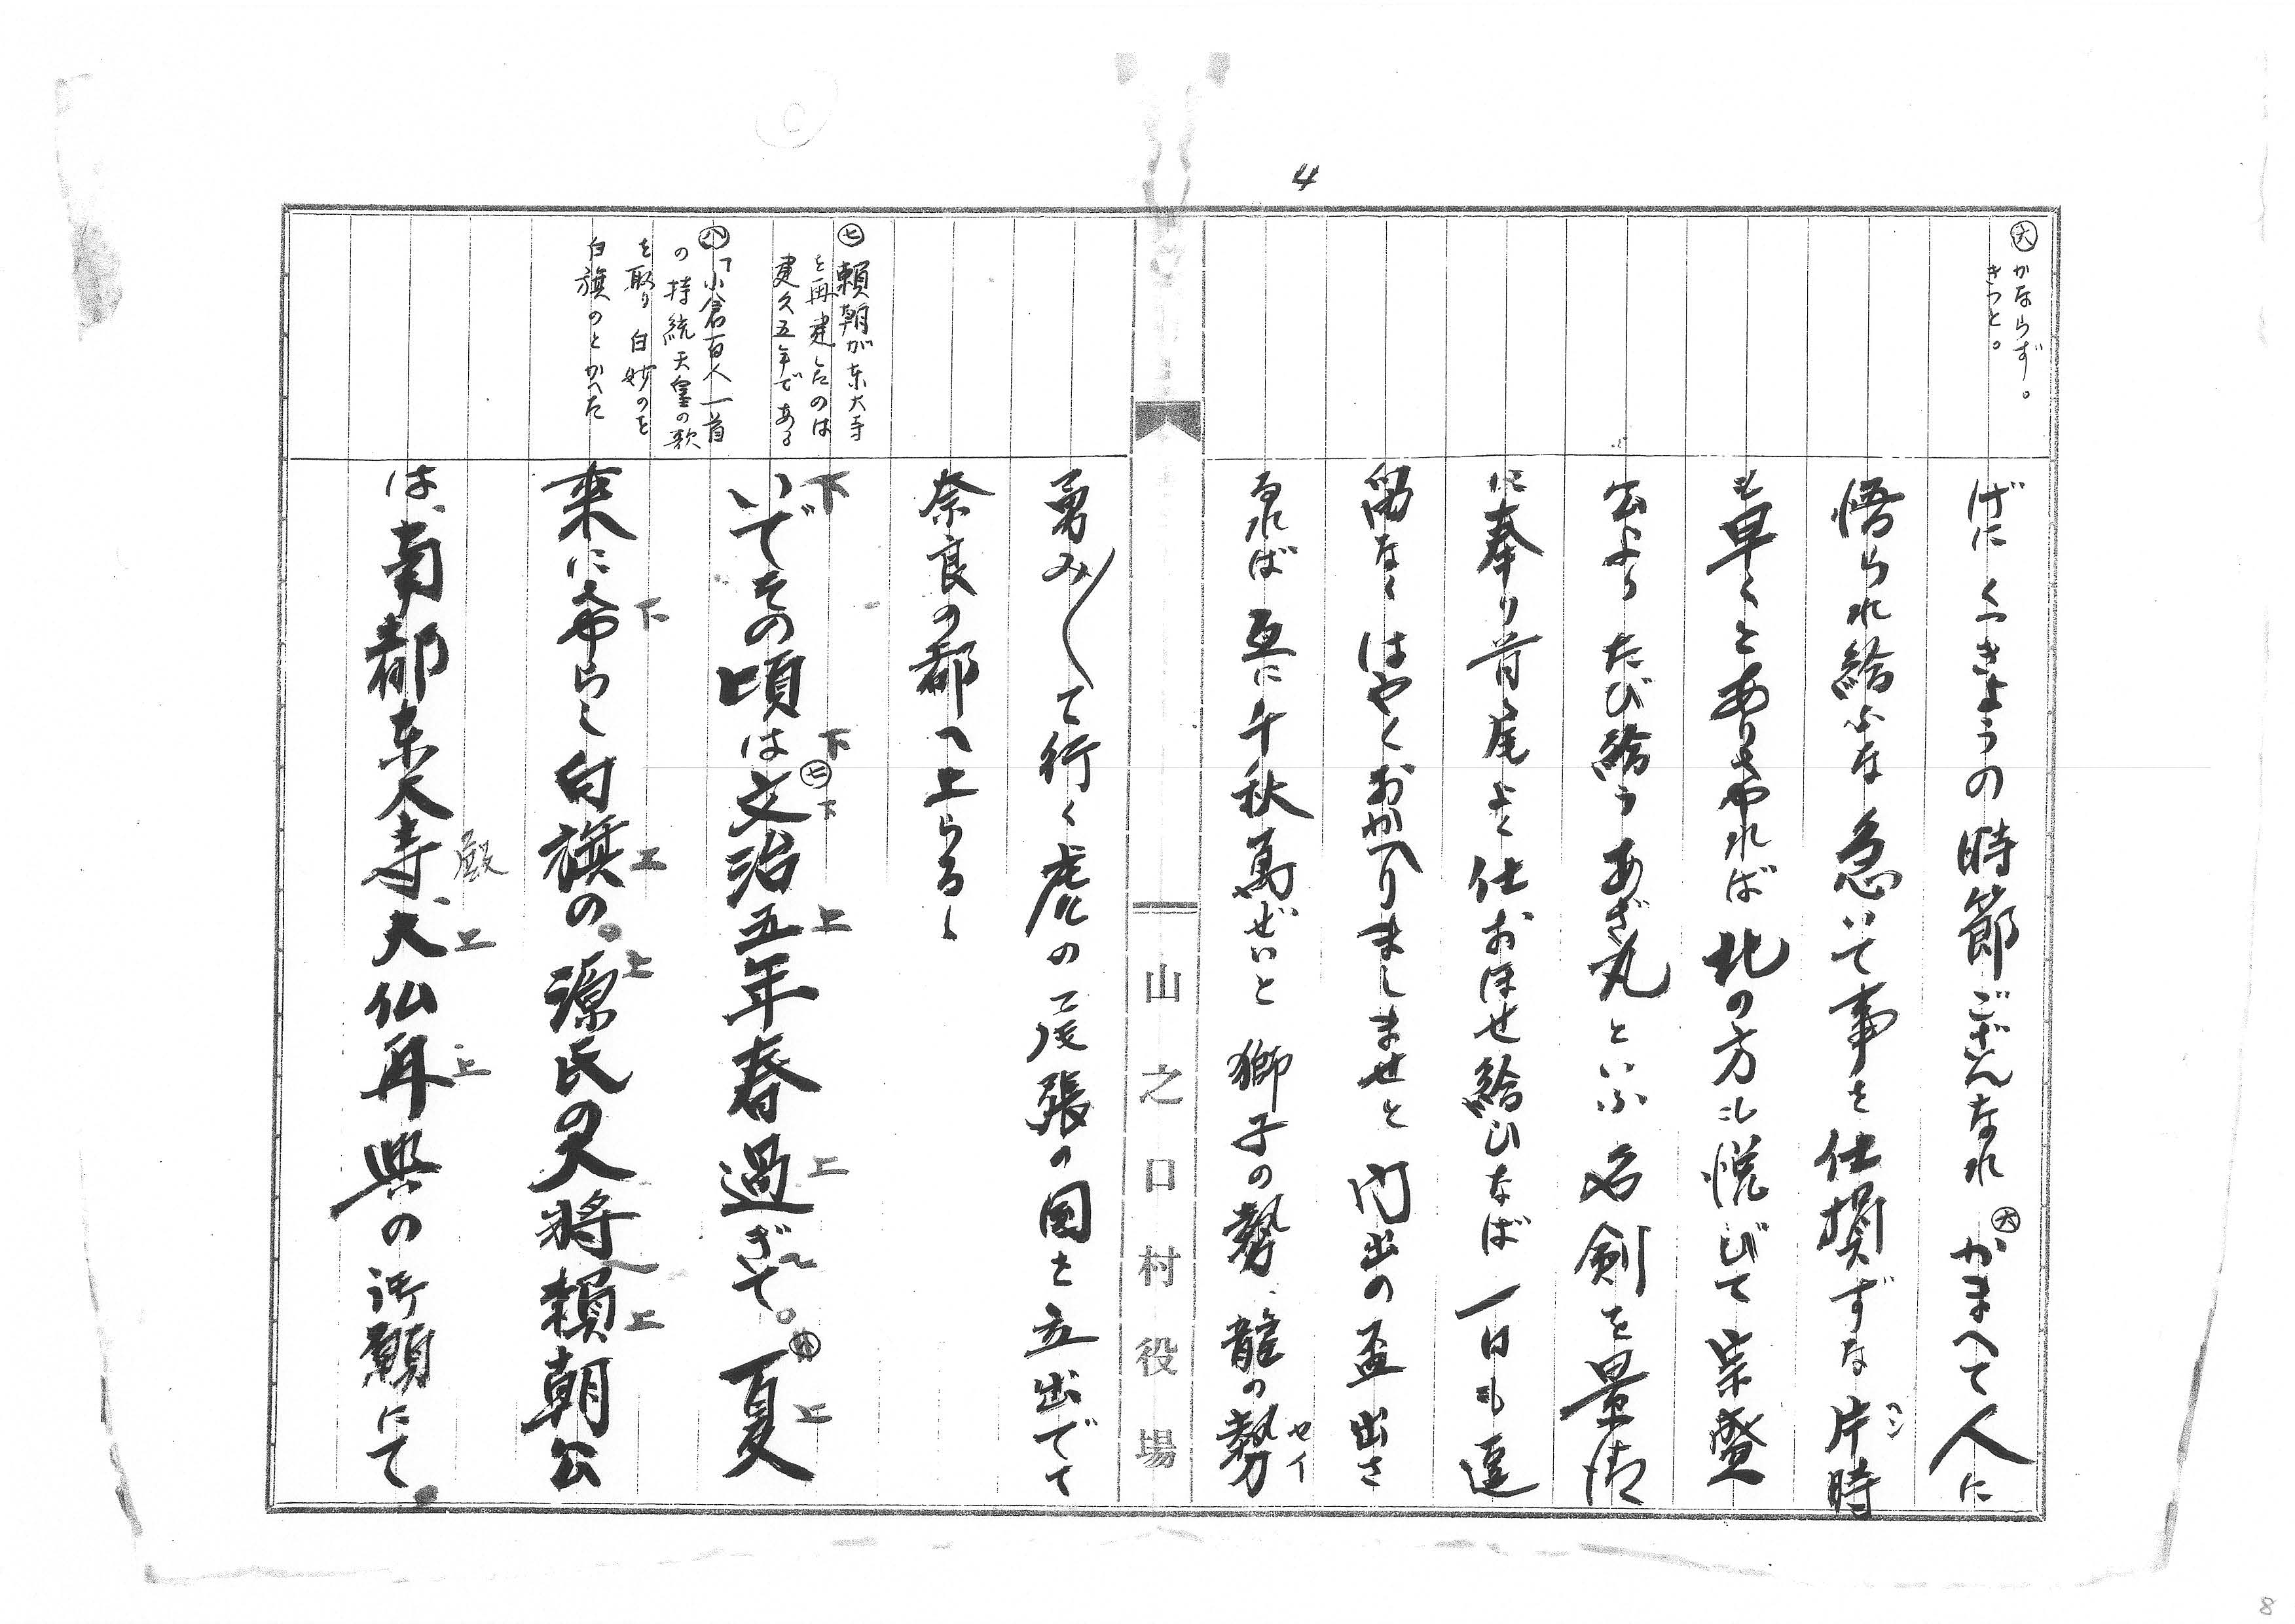 4
㊅ かならず。
きっと。
げにくっきょうの時節ござんなれ ㊅かまへて人に
悟られ給ふな急いで事を仕損ずな片時
ヘン
も早くとありければ北の方も悦びて宗盛
公よりたび給うあざ丸といふ名剣を景清
に奉り首尾よく仕おほせ給ひなば一日も逗
留なくはやくおかへりましませと門出の盃出さ
るれば互に千秋萬ぜいと獅子の勢、龍の勢
セイ
山之口村役場
㊆ 頼朝が東大寺
を再建したのは
建久五年である
㊇「小倉百人一首
の持統天皇の歌
を取り白妙のを
白旗のとかへた
勇み〱て行く虎の尾張の国を立出でて
奈良の都へ上らるゝ
いでその頃は㊆文治五年春過ぎて。㊇夏
下 下 下 上 上 上
来にけらし白旗の。源氏の大将頼朝公
下 上 上 上
は、南都東大寺、大仏再興の御願にて。
殿 上 上
8